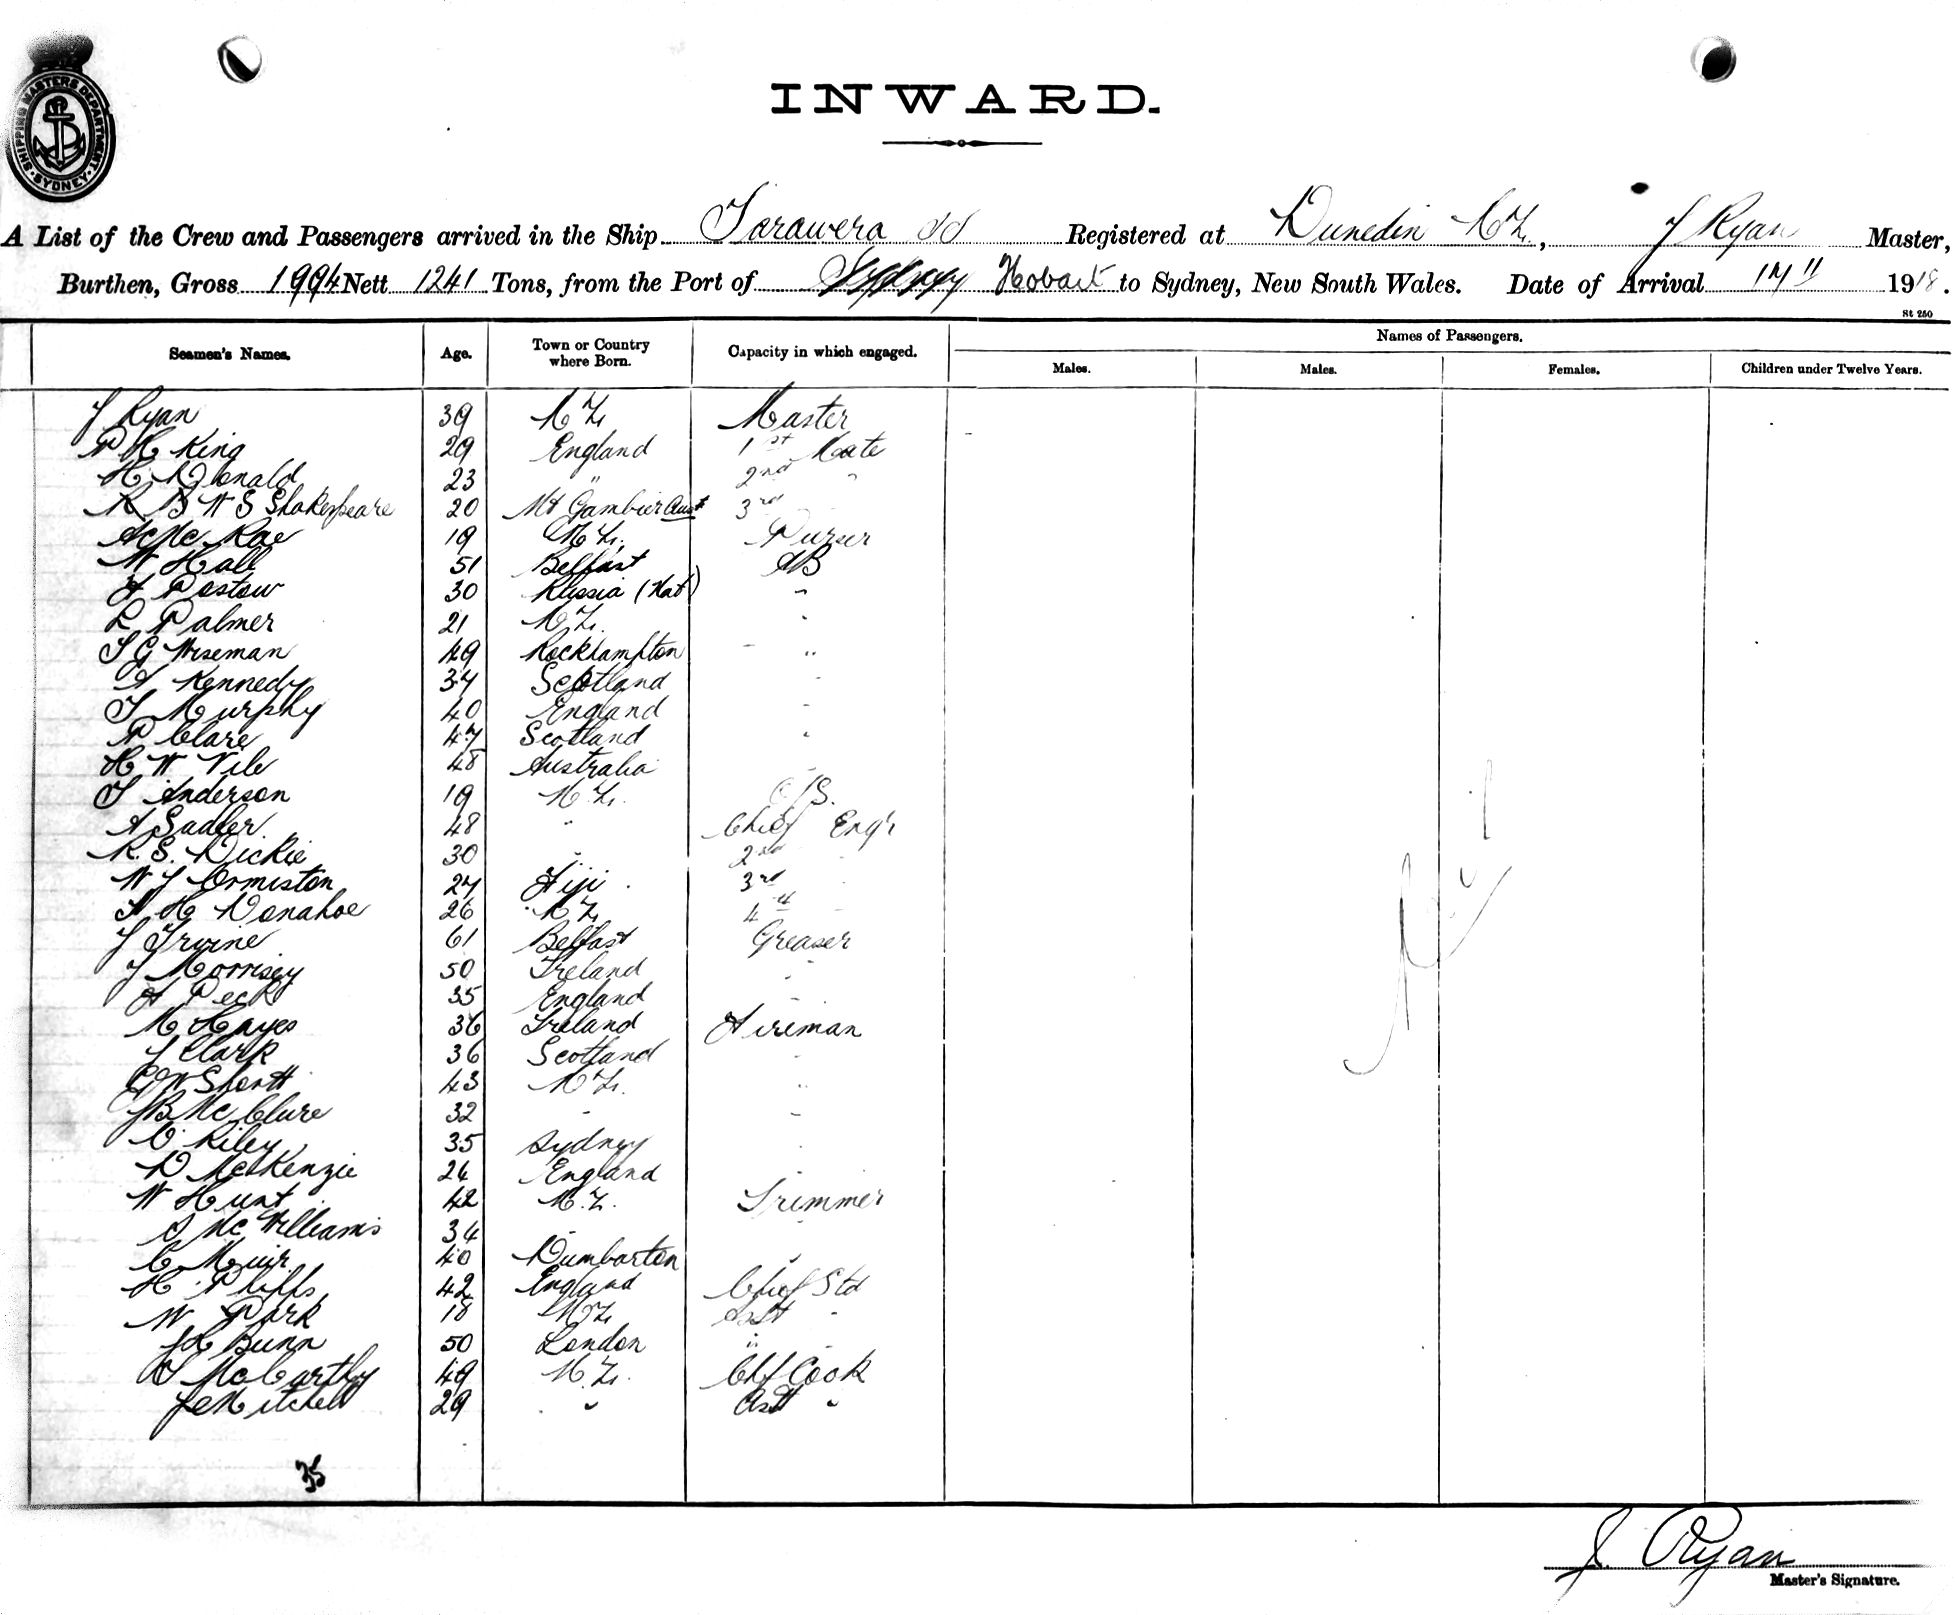 SHIPPING MASTERS DEPARTMENT
SYDNEY
INWARD.
A List of the Crew and Passengers arrived in the Ship Tarawera SS Registered at Dunedin N.Z., J Ryan Master,
Burthen, Gross 1994 Nett 1241 Tons, from the Port of Hobart to Sydney, New South Wales. Date of Arrival 1918.
St 250
Seamen's Names. Age. Town or Country where Born. Capacity in which engaged. Names of Passengers.
Males. Males. Females. Children under Twelve Years.
J Ryan 39 N Z. Master
P H King 29 England 1st Mate
H. McDonald 23 " 2nd "
R B W S Shakespeare 20 Mt Gambier Aust 3rd
A McRae 19 N Z. Purser
W Hall 51 Belfast AB
Postow 30 Russia (Nat) "
L Palmer 21 N Z. "
T G Wiseman 49 Rockhampton "
A Kennedy 37 Scotland "
T Murphy 40 England "
P Clare 47 Scotland "
H W Vile 48 Australia
T Anderson 19 N.Z. O/S.
A Sadler 48 " Chief Eng'r
R. S. Dickie 30 " 2nd
W J Ormiston 27 Fiji 3rd
A H Donahoe 26 N Z 4th
J Irvine 61 Belfast Greaser
J Morrisey 50 Ireland "
A Peck 35 England "
M Hayes 36 Ireland Fireman
J Clark 36 Scotland "
G W Shortt 43 N Z. "
J B McClure 32 " "
C Riley 35 Sydney "
D McKenzie 24 England "
W Hunt 42 N.Z. Trimmer
S McWilliams 34 " "
C Muir 40 Dumbarton "
H Phipps 42 England Chief Std
W Park 18 N Z. Asst "
J H Bunn 50 London "
T McCarthy 49 N.Z. Chf Cook
J E Mitchell 29 " Asst "
Nil
35
J. Ryan
Master's Signature.